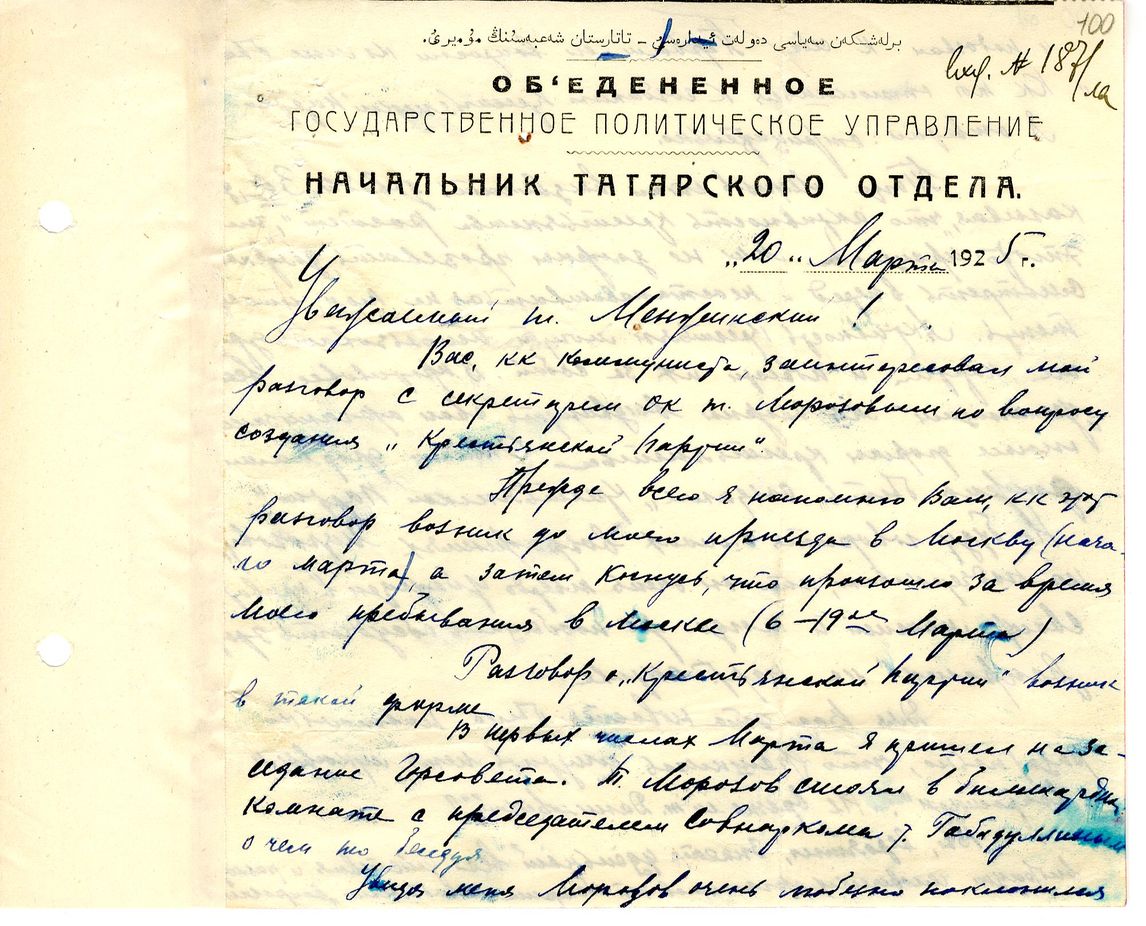 100
вхд. № 187/ла
برلەشكەن سەیاسی دەولەت ئیدارەسی – تاتارستان شەعبەسىنڭ مۇدیری.
ОБ'ЕДЕНЕННОЕ
ГОСУДАРСТВЕННОЕ ПОЛИТИЧЕСКОЕ УПРАВЛЕНИЕ
НАЧАЛЬНИК ТАТАРСКОГО ОТДЕЛА.
„20„ Марта 1925 г.
Уважаемый т. Менжинский!
Вас, кк коммуниста, заинтересовал мой
разговор с секретарем ОК т. Морозовым по вопросу
создания „Крестьянской партии".
Прежде всего я напомню Вам, кк этот
разговор возник до моего приезда в Москву (нача-
ло марта), а затем коснусь, что произошло за время
моего пребывания в Москве (6 – 19ое Марта)
Разговор о „Крестьянской партии" возник
в такой форме
В первых числах Марта я пришел на за-
седание Горсовета. Т. Морозов стоял в биллиардной
комнате с председателем Совнаркома т. Габидуллиным
о чем то беседуя
Увидя меня Морозов очень любезно поклонился